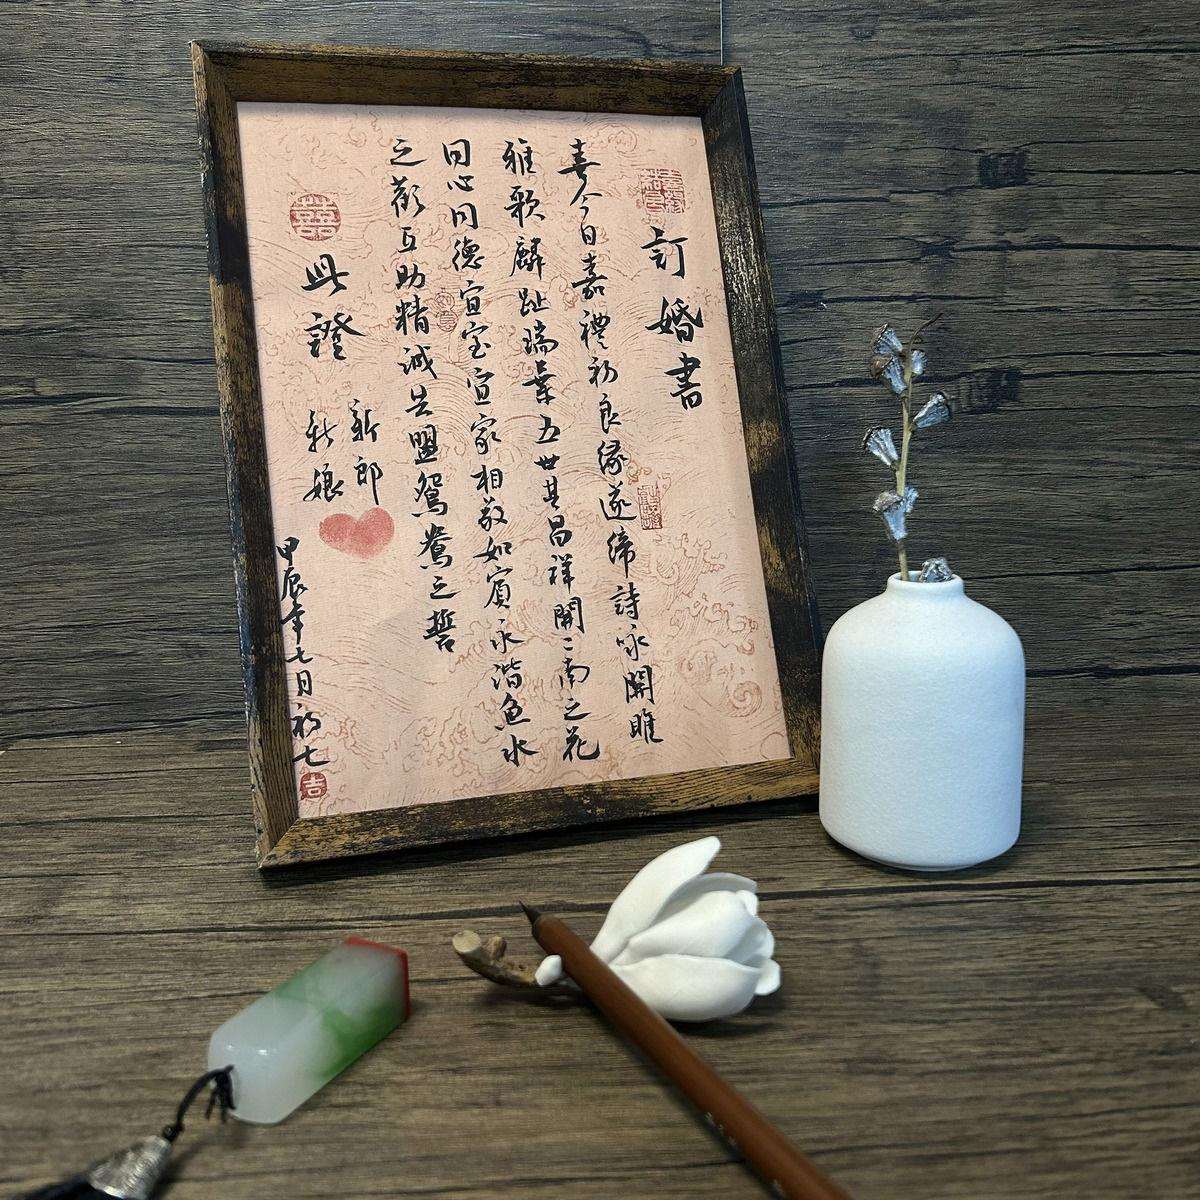 訂婚書
喜今日嘉禮初良緣遂締詩咏關雎
雅歌麟趾瑞葉五世其昌祥開二南之花
同心同德宜室宜家相敬如賓永諧魚水
之歡互助精誠共盟鴛鴦之誓
囍
此證
新郎
新娘
甲辰年七月初七
吉